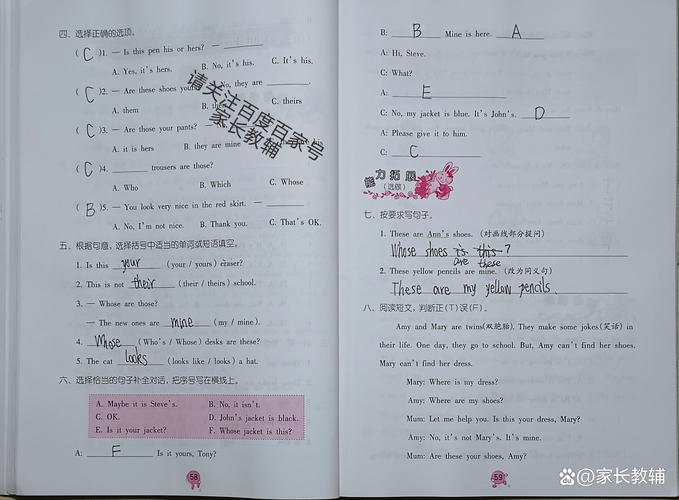 四、选择正确的选项。
( C )1. — Is this pen his or hers? — ________
A. Yes, it's hers. B. No, it's. C. It's his.
( C )2. — Are these shoes yours? No, they are ________.
A. them C. theirs
( C )3. — Are those your pants? —
A. it is hers B. they are mine his
( C )4. ________ trousers are those?
A. Who B. Which C. Whose
( B )5. — You look very nice in the red skirt. — ________
A. No, I'm not nice. B. Thank you. C. That's OK.
五、根据句意,选择括号中适当的单词或短语填空。
1. Is this your (your / yours) eraser?
2. This is not their (their / theirs) school.
3. — Whose are those?
— The new ones are mine (my / mine).
4. Whose (Who's / Whose) desks are these?
5. The cat looks (looks like / looks) a hat.
六、选择恰当的句子补全对话,把序号写在横线上。
A. Maybe it is Steve's. B. No, it isn't.
C. OK. D. John's jacket is black.
E. Is it your jacket? F. Whose jacket is this?
A: F Is it yours, Tony?
58
B: B Mine is here. A
A: Hi, Steve.
C: What?
A: E
C: No, my jacket is blue. It's John's. D
A: Please give it to him.
C: C
能力拓展
(选做)
七、按要求写句子。
1. These are Ann's shoes. (对画线部分提问)
Whose shoes is this?
are these
2. These yellow pencils are mine. (改为同义句)
These are my yellow pencils
八、阅读短文,判断正(T)误(F)。
Amy and Mary are twins(双胞胎). They make some jokes(笑话) in
their life. One day, they go to school. But, Amy can't find her shoes.
Mary can't find her dress.
Mary: Where is my dress?
Amy: Where are my shoes?
Mum: Let me help you. Is this your dress, Mary?
Amy: No, it's not Mary's. It's mine.
Mum: Are these your shoes, Amy?
59
请关注百度百家号
家长教辅
家长教辅